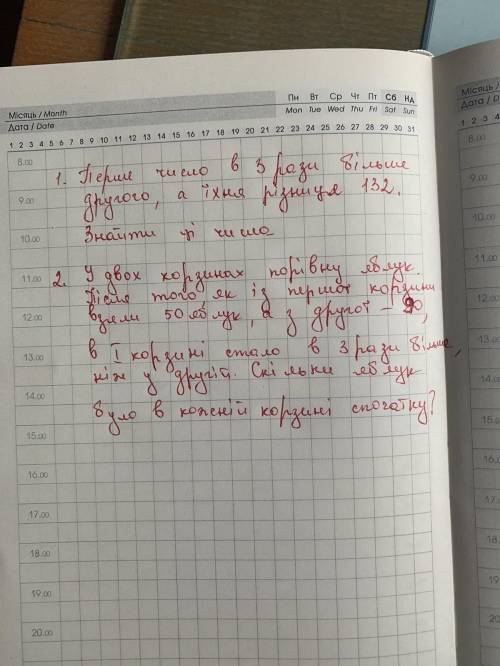 Місяць / Month
Дата / Date
Пн Вт Ср Чт Пт Сб Нд
Mon Tue Wed Thu Fri Sat Sun
1 2 3 4 5 6 7 8 9 10 11 12 13 14 15 16 17 18 19 20 21 22 23 24 25 26 27 28 29 30 31
8.00
1. Перше число в 3 рази більше
9.00
другого, а їхня різниця 132.
10.00
Знайти ці числа
11.00
2. У двох корзинах порівну яблук.
Після того як із першої корзини
12.00
взяли 50 яблук, а з другої – 90,
13.00
в I корзині стало в 3 рази більше,
ніж у другій. Скільки яблук
14.00
було в кожній корзині спочатку?
15.00
16.00
17.00
18.00
19.00
20.00
Місяць /
Дата / D
1 2 3 4
8.00
9.00
10.00
11.00
12.00
13.00
14.00
15.00
16.00
17.00
18.00
19.00
20.00